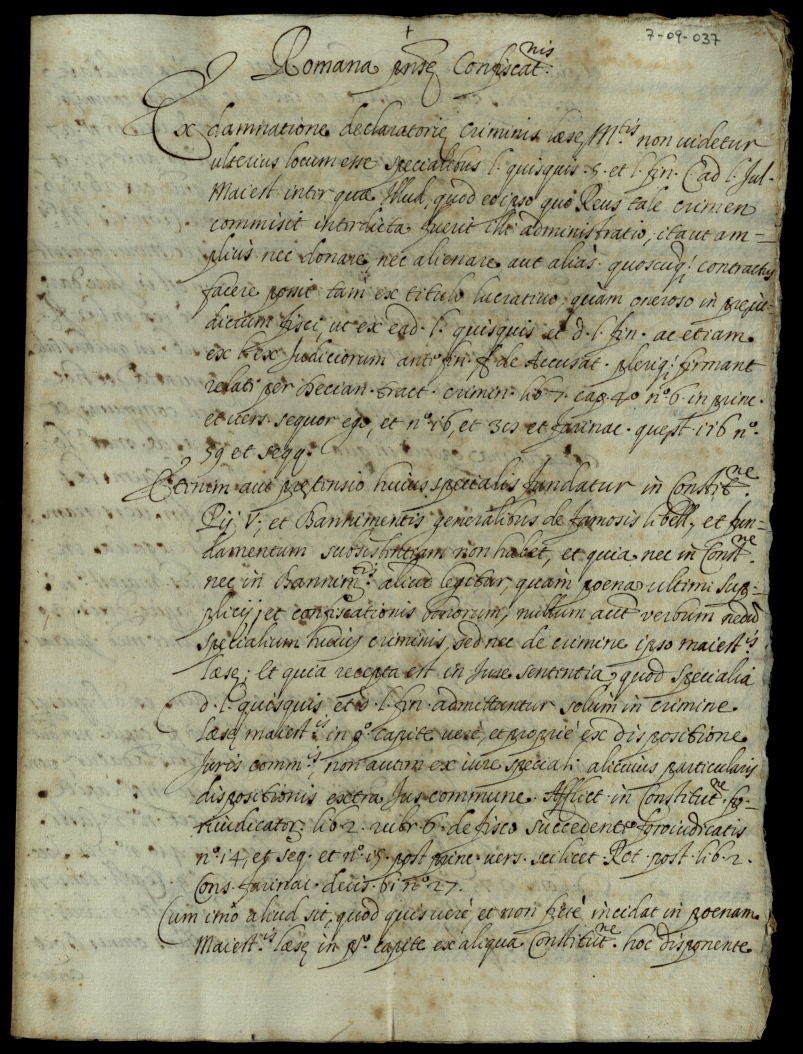 7-09-037
+
Romana pnsę Confiscat.nis
Ex damnatione declaratorię Criminis læsę M.tis non uidetur
ulterius locum esse specialibus l. quisquis 5. et l. fin. C ad l. Jul.
Maiest inter quæ Illud, quod eo ipso quo Reus tale crimen
commisit interdicta fuerit illi administratio, ita ut am=
plius nec donare nec alienare aut alias quoscuq. contractus
facere possit tam ex titulo lucratiuo, quam oneroso in preiu=
dicium fisci, ut ex ead. l. quisquis et d. l. fin. ac etiam
ex l. ex Judiciorum ff. de Accusat. pleriq. firmant
relati per Decian. tract. crimin. lib. 7. cap. 40 n.o 6. in princ.
et uers. sequor ego, et n.o 16, et 30 et farinac. quest. 116 n.o
59 et seqq.
Etenim aut prętensio huius specialis fundatur in Constit.ne
Pij V, et Bannimentis generalibus de famosis libell., et fun=
damentum subsistentiam non habet, et quia nec in Const.ne
nec in Bannim.tis aliud legitur, quam poena ultimi sup=
plicij, et confiscationis bonorum, nullum aut uerbum nedu
specialium huius criminis, sed nec de crimine ipso maiest.is
læsę; Et quia recepta est in Jure sententia, quod specialia
d. l. quisquis et d. l. fin. admittuntur solum in crimine
læsę maiest.is in p.o capite uerè, et propriè ex dispositione
Juris comm.is, non autem ex iure speciali alicuius particularis
dispositionis extra Jus commune. Afflict. in Constitut.ne
lib. 2. rubr. 6. de fisco succedente foroiudicatis
n.o 14, et seq. et n.o 15. post princ. uers. scilicet Rot. post. lib. 2.
Cons. farinac. decis. 61 n.o 27.
Cum imò aliud sit, quod quis uerè, et non fictè incidat in poenam
Maiest.is læsę in p.o capite ex aliqua Constitut.ne hoc disponente